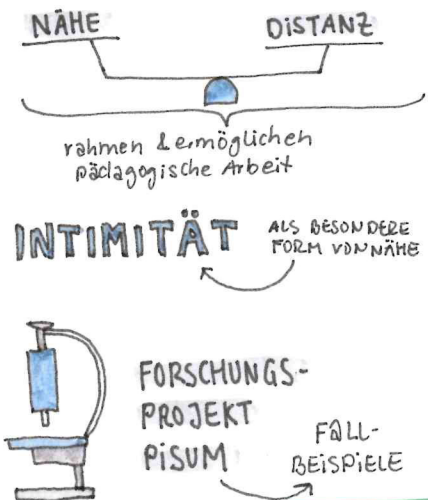 NÄHE DISTANZ
rahmen & ermöglichen
pädagogische Arbeit
INTIMITÄT
ALS BESONDERE
FORM VON NÄHE
FORSCHUNGS-
PROJEKT
PISUM
FALL-
BEISPIELE